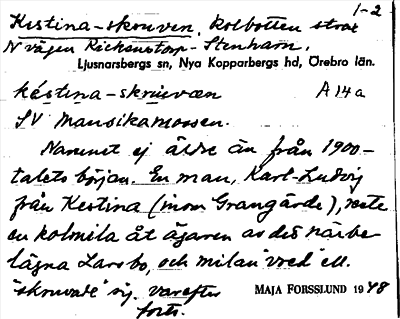 1-2
Kistina-skruven, kolbotten strax
N vägen Rickenstorp - Stenharn.
Ljusnarsbergs sn, Nya Kopparbergs hd, Örebro län.
késtina-skrùevæn A 14 a
SV Mansikamossen.
Namnet ej äldre än från 1900-
talets början. En man, Karl-Ludvig
från Kestina (inom Grangärde), reste
en kolmila åt ägaren av det närbe-
lägna Larsbo, och milan "vred" ell.
"skruvade" sig. Varefter
MAJA FORSSLUND 1948
forts.